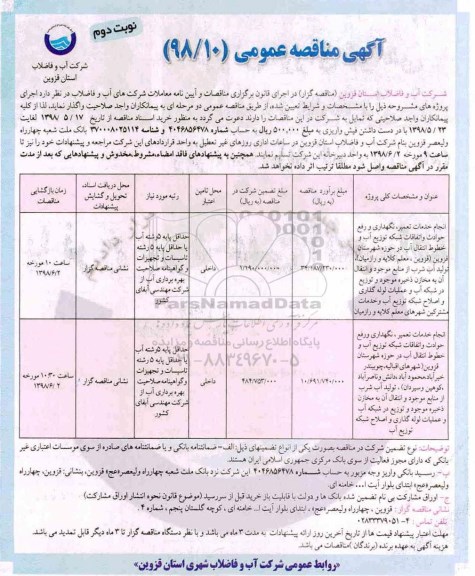 نوبت دوم
آگهی مناقصه عمومی (۹۸/۱۰)
شرکت آب و فاضلاب
استان قزوین
شرکت آب و فاضلاب استان قزوین (مناقصه گزار) در اجرای قانون برگزاری مناقصات و آیین نامه معاملات شرکت های آب و فاضلاب در نظر دارد اجرای
پروژه های مشروحه ذیل را با مشخصات و شرایط تعیین شده، از طریق مناقصه عمومی دو مرحله ای به پیمانکاران واجد صلاحیت واگذار نماید، لذا از کلیه
پیمانکاران واجد صلاحیتی که تمایل به شرکت در این مناقصات را دارند دعوت می گردد به منظور خرید اسناد مناقصه از تاریخ ۱۳۹۸/۵/۱۷ لغایت
۱۳۹۸/۵/۲۳ با در دست داشتن فیش واریزی به مبلغ ۵۰۰,۰۰۰ ریال به حساب شماره ۲۰۴۶۸۵۶۴۷۸ و شناسه ۳۷۰۰۰۸۰۲۵۱۱۴ بانک ملت شعبه چهارراه
ولیعصر قزوین بنام شرکت آب و فاضلاب استان قزوین در ساعات اداری روزهای غیر تعطیل به واحد قراردادهای این شرکت مراجعه و پیشنهادات خود را تا
ساعت ۹ مورخه ۱۳۹۸/۶/۲ به واحد دبیرخانه این شرکت تسلیم نمایند. همچنین به پیشنهادهای فاقد امضاء، مشروط، مخدوش و پیشنهادهایی که بعد از مدت
مقرر در آگهی مناقصه واصل شود مطلقا ترتیب اثر داده نخواهد شد.
عنوان و مشخصات کلی پروژه
مبلغ برآورد مناقصه (به ریال)
مبلغ تضمین شرکت در مناقصه (به ریال)
محل تامین اعتبار
رتبه مورد نیاز
محل دریافت اسناد، تحویل و گشایش پیشنهادات
زمان بازگشایی مناقصات
انجام خدمات تعمیر، نگهداری و رفع
حوادث و اتفاقات شبکه توزیع آب و
خطوط انتقال آب در حوزه شهرستان
قزوین (قزوین، معلم کلایه و رازمیان)،
تولید آب شرب از منابع موجود و انتقال
آن به مخازن ذخیره موجود و توزیع
در شبکه آب و عملیات لوله گذاری
و اصلاح شبکه توزیع آب و خدمات
مشترکین شهرهای معلم کلایه و رازمیان
۱/۱۹۰/۰۰۰/۰۰۰
داخلی
حداقل پایه ۵ رشته آب
یا حداقل پایه ۵ رشته
تاسیسات و تجهیزات
و گواهینامه صلاحیت
بهره برداری آب از
شرکت مهندسی آبفای
کشور
نشانی مناقصه گزار
ساعت ۱۰ مورخه
۱۳۹۸/۶/۲
انجام خدمات تعمیر، نگهداری و رفع
حوادث و اتفاقات شبکه توزیع آب و
خطوط انتقال آب در حوزه شهرستان
قزوین (شهرهای اقبالیه، چوبیندر،
خیرآباد، محمود آباد، دانش و ناصرآباد
، کوهین و سیردان)، تولید آب شرب
از منابع موجود و انتقال آن به مخازن
ذخیره موجود و توزیع در شبکه آب
و عملیات لوله گذاری و اصلاح شبکه
توزیع آب
۱۰/۶۹۱/۷۴۰/۰۰۰
۴۸۴/۷۵۳/۰۰۰
داخلی
حداقل پایه ۵ رشته آب
یا حداقل پایه ۵ رشته
تاسیسات و تجهیزات
و گواهینامه صلاحیت
بهره برداری آب از
شرکت مهندسی آبفای
کشور
نشانی مناقصه گزار
ساعت ۱۰:۳۰ مورخه
۱۳۹۸/۶/۲
ParsNamadData
پایگاه اطلاع رسانی مناقصه و مزایده
۰۲۱-۸۸۳۴۹۶۷۰-۵
توضیحات: نوع تضمین شرکت در مناقصه بصورت یکی از انواع تضمینهای ذیل: الف- ضمانتنامه بانکی و یا ضمانتنامه های صادره از سوی موسسات اعتباری غیر
بانکی که دارای مجوز فعالیت از سوی بانک مرکزی جمهوری اسلامی ایران هستند.
ب- رسید بانکی واریز وجه مزبور به حساب شماره ۲۰۴۶۸۵۶۴۷۸ این شرکت نزد بانک ملت شعبه چهارراه ولیعصر(عج) قزوین، بنشانی: قزوین، چهارراه
ولیعصر(عج) ابتدای بلوار آیت ا... خامنه ای.
ج- اوراق مشارکت بی نام تضمین شده بانک ها و دولت با قابلیت باز خرید قبل از سررسید (موضوع قانون نحوه انتشار اوراق مشارکت)
نشانی مناقصه گزار: قزوین، چهارراه ولیعصر(عج)، ابتدای بلوار آیت ا... خامنه ای، کوچه گلستان پنجم، شماره ۴.
تلفن تماس: ۴-۰۲۸۳۳۳۷۹۰۵۱
مهلت اعتبار پیشنهاد قیمت ها از تاریخ آخرین روز ارائه پیشنهادات به مدت ۳ ماه می باشد و با نظر دستگاه مناقصه گزار تا ۳ ماه دیگر قابل تمدید می باشد.
هزینه آگهی به عهده برنده (برندگان) مناقصات می باشد.
«روابط عمومی شرکت آب و فاضلاب شهری استان قزوین»